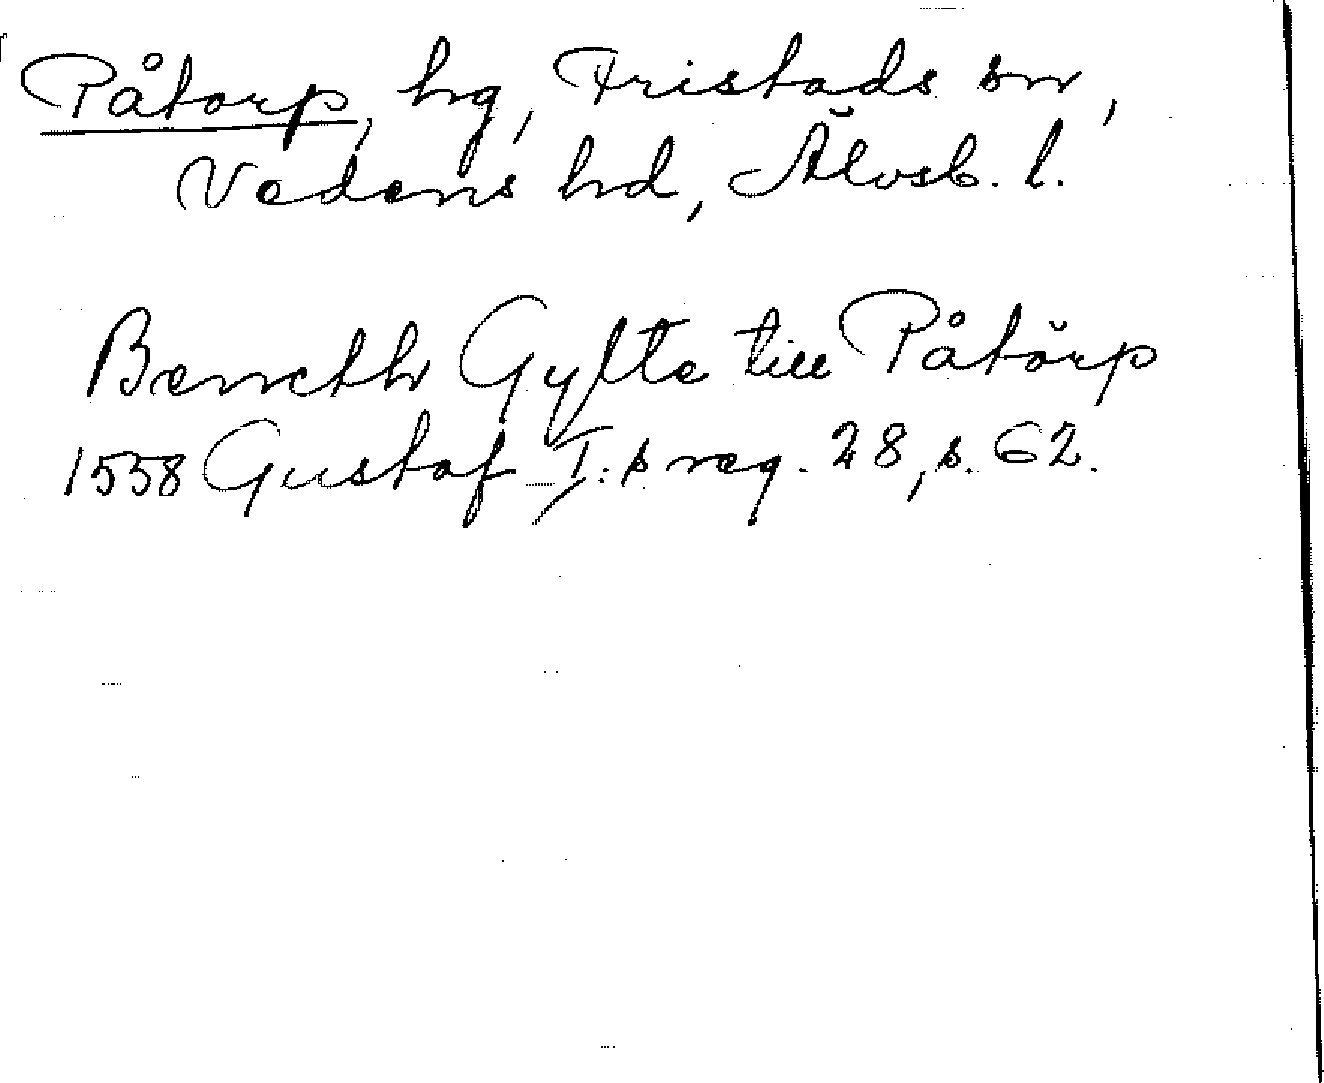 Påtorp, hg, Fristads sn,
Vedens hd, Älvsb. l.
Bencth Gylte till Påtörp
1558 Gustaf I:s reg. 28, s. 62.